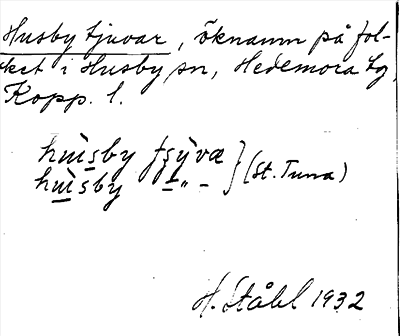 Husby tjuvar, öknamn på fol-
ket i Husby sn, Hedemora tg,
Kopp. l.
hùsby tʃỳvæ } (St. Tuna)
hùsby –„–
H. Ståhl 1932